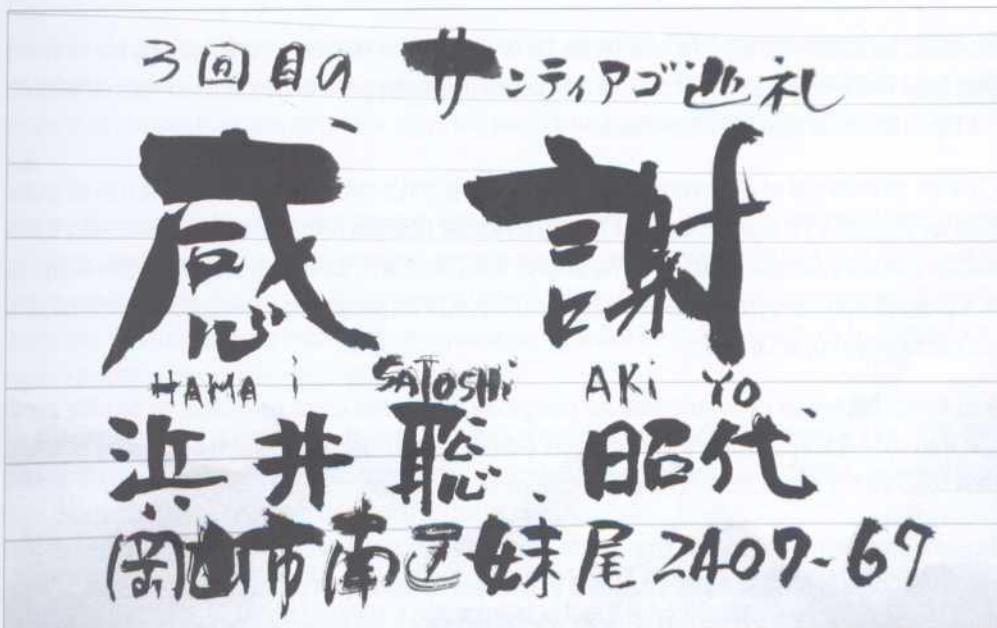 3回目の サンティアゴ巡礼
感謝
HAMAi SATOSHi AKiYO
浜井聡 昭代
岡山市南区妹尾2407-67